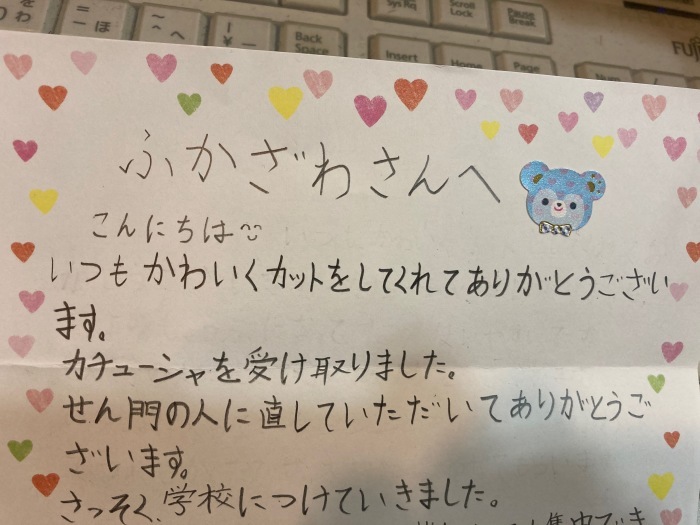 Sys Rq
Scroll Lock
Pause Break
を
わ
=
ー ほ
~
^ へ
|
¥ ー
Back Space
Insert
Home
Page
Num
/
ふかざわさんへ
こんにちは
いつもかわいくカットをしてくれてありがとうござい
ます。
カチューシャを受け取りました。
せん門の人に直していただいてありがとうご
ざいます。
さっそく、学校につけていきました。
集中でき